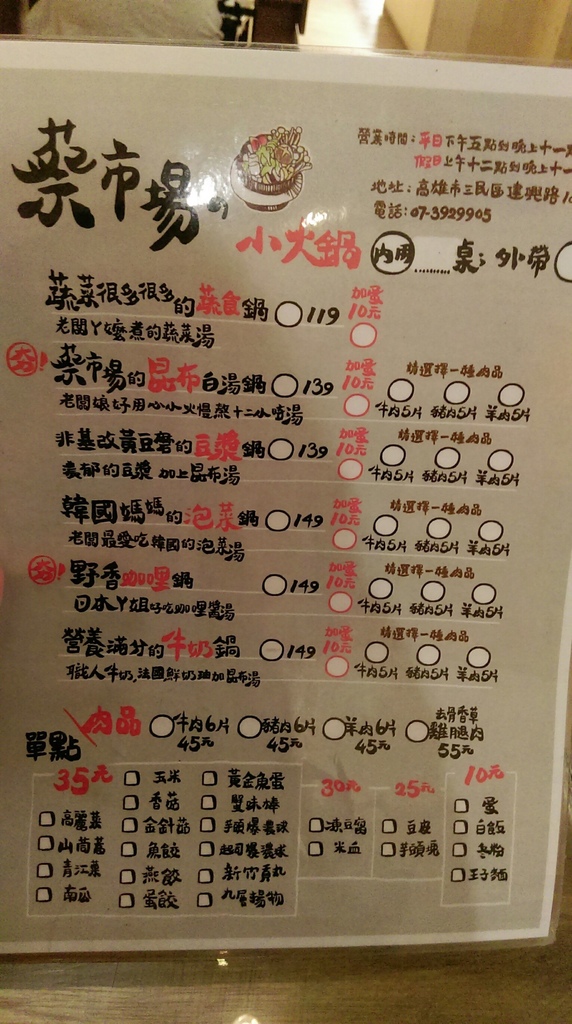 菜市場の
小火鍋
營業時間：平日下午五點到晚上十一
假日上午十二點到晚上十一
地址：高雄市三民區建興路
電話：07-3929905
內用 ........桌；外帶
蔬菜很多很多的蔬食鍋 119 加蛋10元
老闆ㄚ嬤煮的蔬菜湯
夯！菜市場的昆布白湯鍋 139 加蛋10元 請選擇一種肉品
老闆娘好用心小火慢熬十二小時湯 牛肉5片 豬肉5片 羊肉5片
非基改黃豆磨的豆漿鍋 139 加蛋10元 請選擇一種肉品
濃郁的豆漿 加上昆布湯 牛肉5片 豬肉5片 羊肉5片
韓國媽媽的泡菜鍋 149 加蛋10元 請選擇一種肉品
老闆最愛吃韓國的泡菜湯 牛肉5片 豬肉5片 羊肉5片
夯！野香咖哩鍋 149 加蛋10元 請選擇一種肉品
日本ㄚ姐好吃咖哩醬湯 牛肉5片 豬肉5片 羊肉5片
營養滿分的牛奶鍋 149 加蛋10元 請選擇一種肉品
職人牛奶,法國鮮奶油加昆布湯 牛肉5片 豬肉5片 羊肉5片
單點
肉品 牛肉6片 45元 豬肉6片 45元 羊肉6片 45元 去骨香草雞腿肉 55元
35元
高麗菜
山茼蒿
青江菜
南瓜
玉米
香菇
金針菇
魚餃
燕餃
蛋餃
黃金魚蛋
蟹味棒
芋頭爆漿球
起司爆漿球
新竹貢丸
九層楊物
30元
凍豆腐
米血
25元
豆皮
芋頭塊
10元
蛋
白飯
冬粉
王子麵